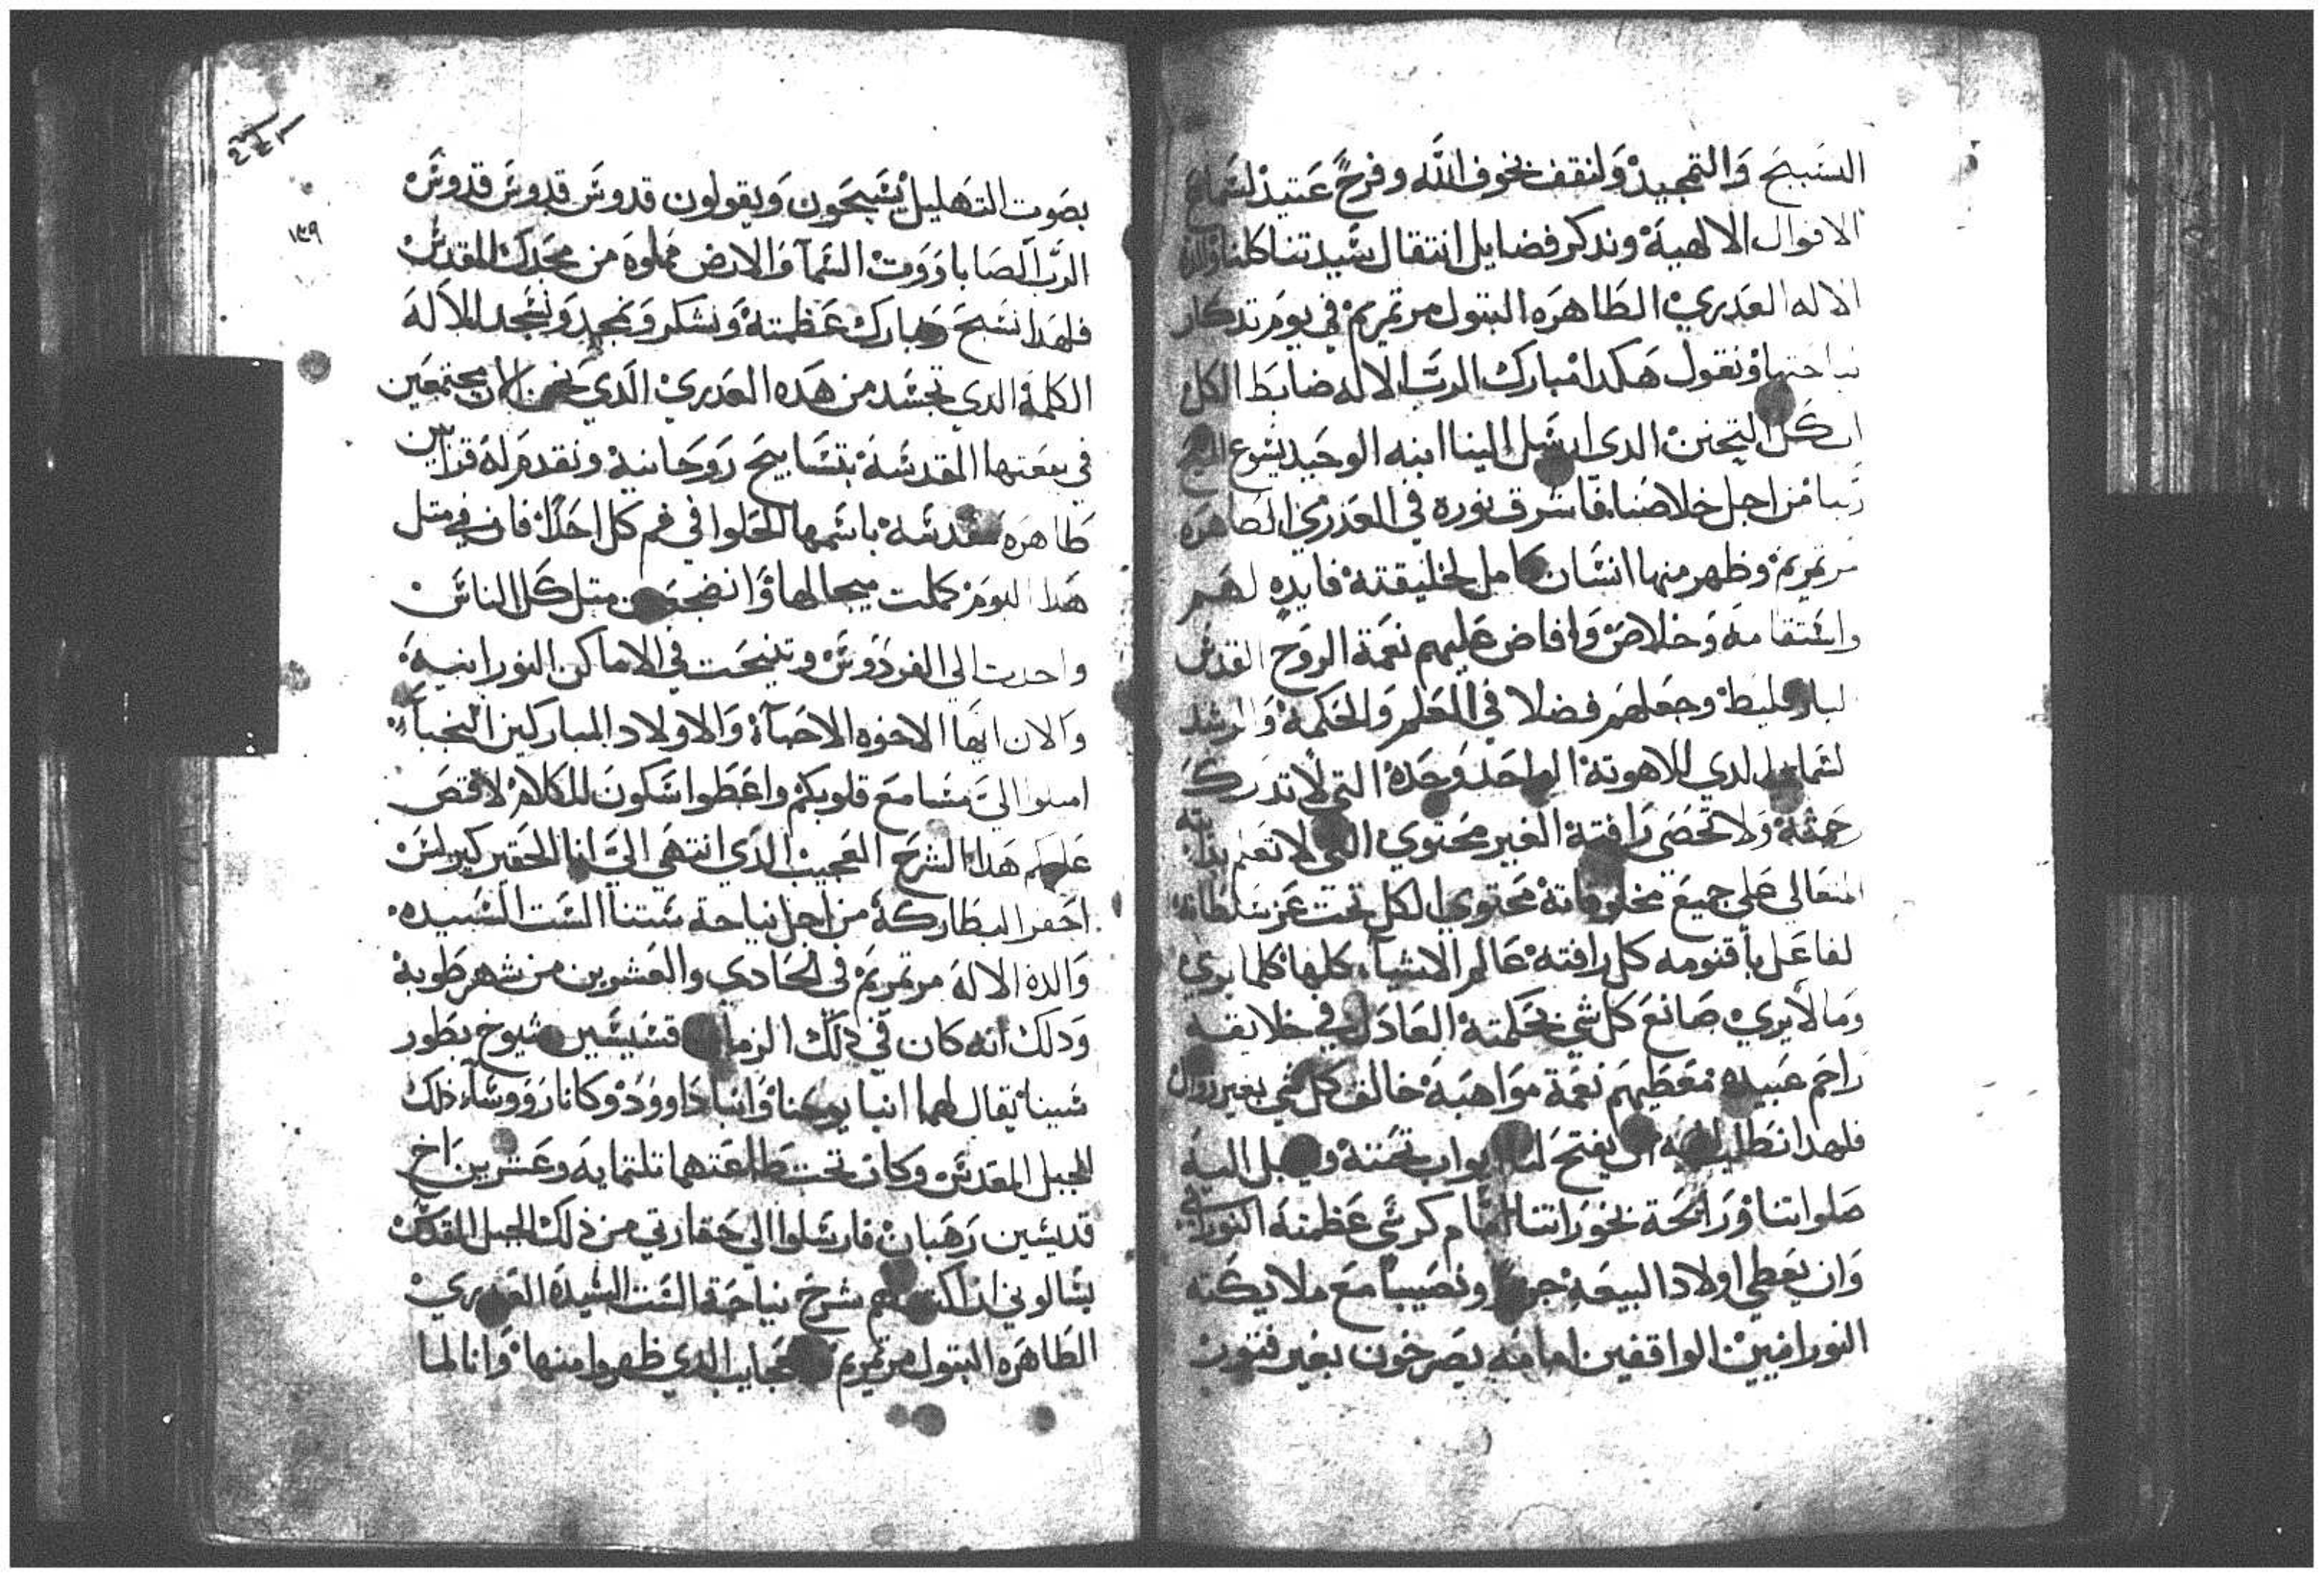 التسبيح والتمجيد ولنقف بخوف الله وفرح عتيد لسماع
الاقوال الالهية وندكر فضايل انتقال سيدتنا كلنا والدة
الاله العدري الطاهره البتول مرتمريم في يوم تدكار
نياحتها ونقول هكدا مبارك الرب الاله ضابط الكل
التحنن الدي ارسل الينا ابنه الوحيد يسوع المسيح
ربنا من اجل خلاصنا فاشرق نوره في العدري الطاهره
مرتمريم وظهر منها انسان كامل لخليقته فايده لهم
واستقامه وخلاص وافاض عليهم نعمة الروح القدس
لبارقليط وجعلهم فضلا في العلم والحكمة والرشد
لدي اللاهوته الواحد وحده التي لا تدرك
ولا تحصى رافتة الغير محتوي التي لا تعلم
المتعالى علي جميع مخلوقاته محتوي الكل تحت عز سلطانه
لفاعل باقنومه كل رافته عالم الاشيآء كلها كلما يري
وما لا يري صانع كل شي بحكمته العادل في خلايقه
راحم عبيده معطيهم نعمة مواهبه خالق كل شي بغير زوال
فلهدا نطلب يفتح لنا ابواب تحننه ويقبل اليه
صلواتنا ورايحة بخوراتنا امام كرسي عظمته النوراني
وان يعطي اولاد البيعه ونصيبا مع ملايكته
النورانيين الواقفين امامه يصرخون بغير فتور
١٣٩
بصوت التهليل يسبحون ويقولون قدوس قدوس قدوس
الرب الصاباووت السمآ والارض مملوه من مجدك المقدس
فلهدا نسبح ونبارك عظمته ونشكر ونمجد ونسجد للاله
الكلمة الدي تجسد من هده العدري الدي نحن الان مجتمعين
في بيعتها المقدسه بتسابيح روحانية ونقدم له قرابين
طاهره مقدسه باسمها الحلوا في فم كل احد لان في متل
هدا اليوم كملت وانضجعت متل كل الناس
الي الفردوس وتنيحت في الاماكن النورانيه
والان ايها الاخوه الاحبآء والاولاد المباركين النجبآء
اميلوا الي مسامع قلوبكم واعطوا سكون للكلام لاقص
عليكم هدا الشرح العجيب الدي انتهي الي انا الحقير كيرلس
احقر البطاركة من اجل نياحة ستنا الست السيده
والدة الاله مرتمريم في الحادي والعشرين من شهر طوبة
ودلك انه كان في دلك الزمان قسيسين شيوخ بطور
سينا يقال لهما انبا يوحنا وانبا داوود وكانا رووسآء ذلك
الجبل المقدس وكان تحت طاعتهما تلتمايه وعشرين اخ
قديسين رهبان فارسلوا الي حقارتي من ذلك الجبل المقدس
يسالوني ان اكتب لهم شرح نياحة الست السيدة العدري
الطاهره البتول مرتمريم والعجايب الدي ظهروا منها وانا لما